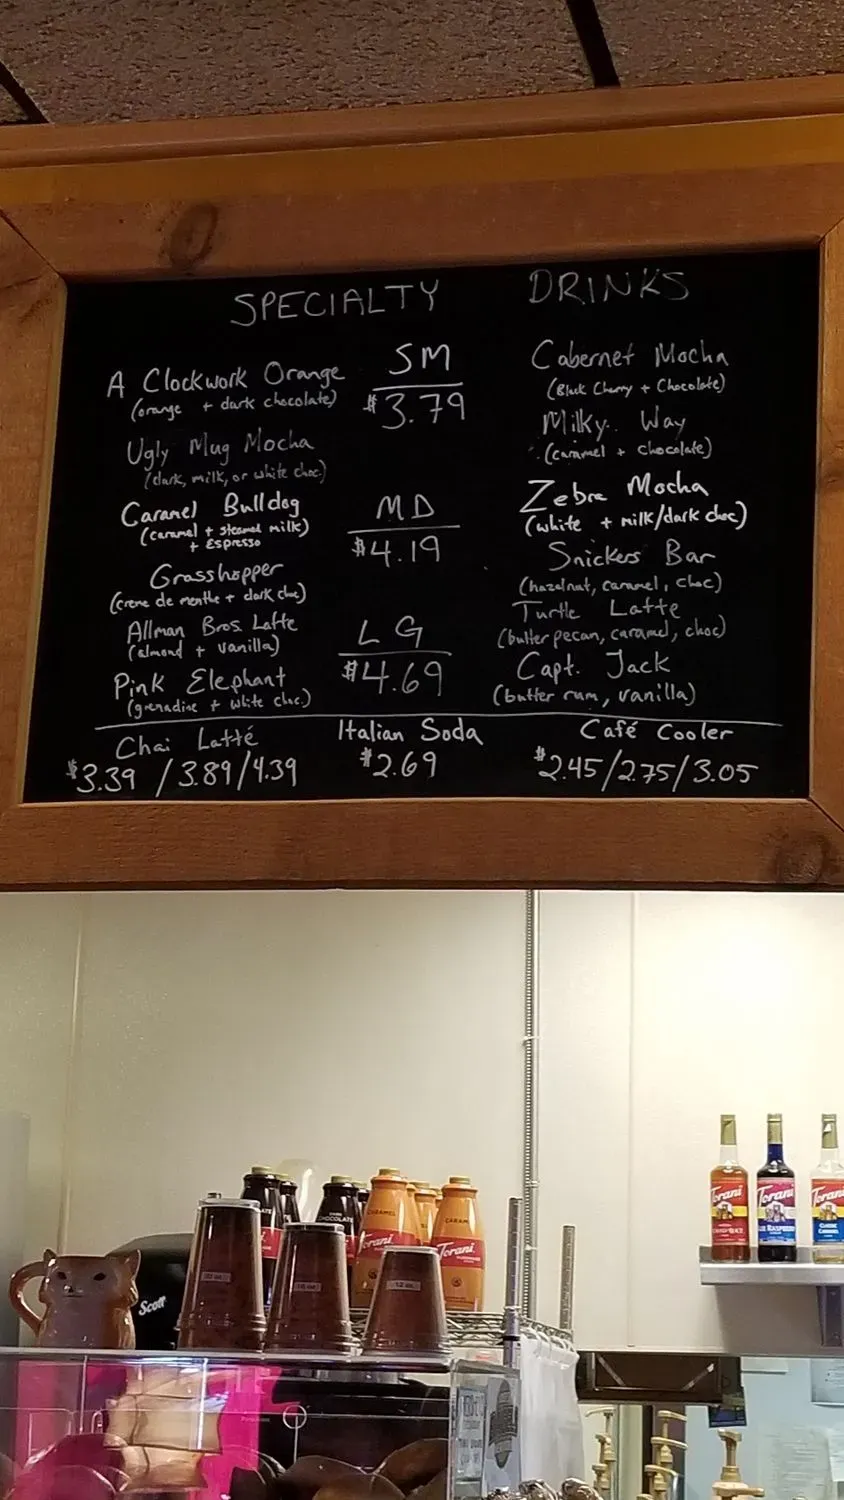 SPECIALTY DRINKS
A Clockwork Orange
(orange + dark chocolate)
Ugly Mug Mocha
(dark, milk, or white choc.)
Caramel Bulldog
(caramel + steamed milk)
+ Espresso
Grasshopper
(creme de menthe + dark choc)
Allman Bros. Latte
(almond + vanilla)
Pink Elephant
(grenadine + white choc.)
SM
$3.79
MD
$4.19
LG
$4.69
Cabernet Mocha
(Black Cherry + Chocolate)
Milky Way
(caramel + chocolate)
Zebra Mocha
(white + milk/dark choc)
Snickers Bar
(hazelnut, caramel, choc)
Turtle Latte
(butter pecan, caramel, choc)
Capt. Jack
(butter rum, vanilla)
Chai Latté
$3.39 / 3.89/4.39
Italian Soda
$2.69
Café Cooler
$2.45/2.75/3.05
CHOCOLATE
CARAMEL
Torani
CARAM
Torani
Torani
Torani
Torani
CLASSIC
CARAMEL
Scott
16 oz.
12 oz.